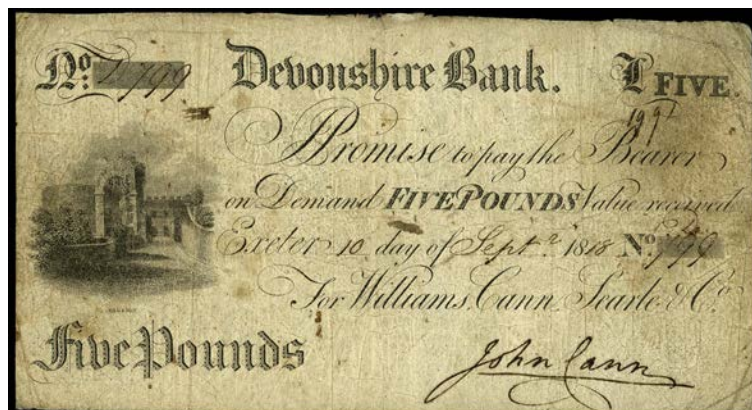 No. 799 Devonshire Bank. £ FIVE.
I Promise to pay the Bearer
on Demand FIVE POUNDS Value received
Exeter 10 day of Septr. 1818 No. 799
For Williams, Cann, Searle & Co.
Five Pounds John Cann